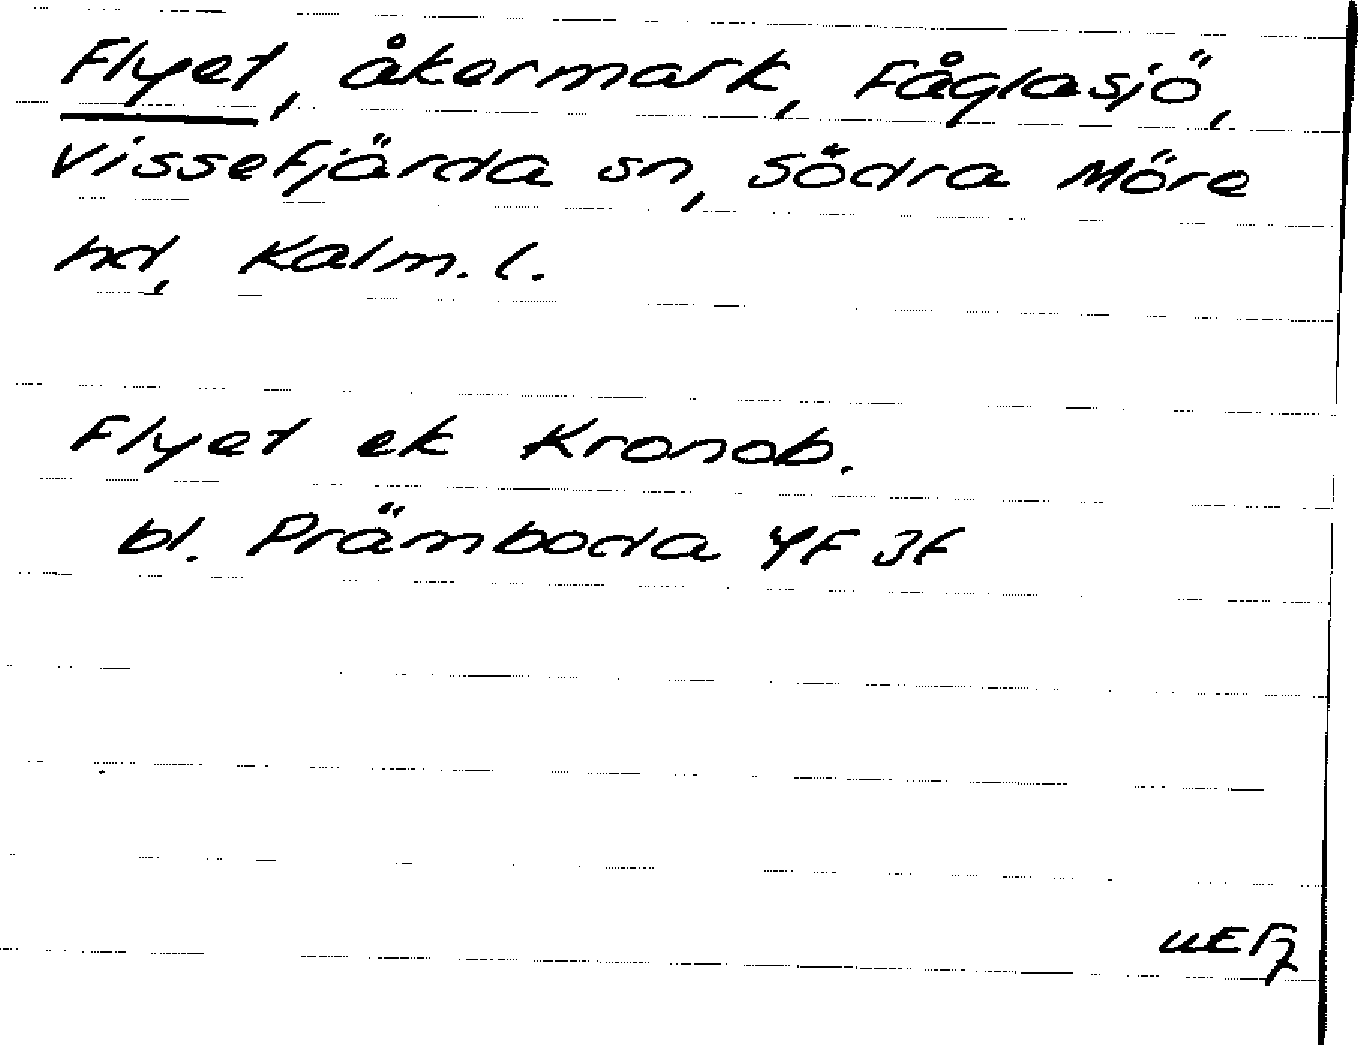 Flyet, åkermark, Fåglasjö,
Vissefjärda sn, Södra Möre
hd, Kalm. l.
Flyet ek Kronob.
bl. Prämboda 4F 3f